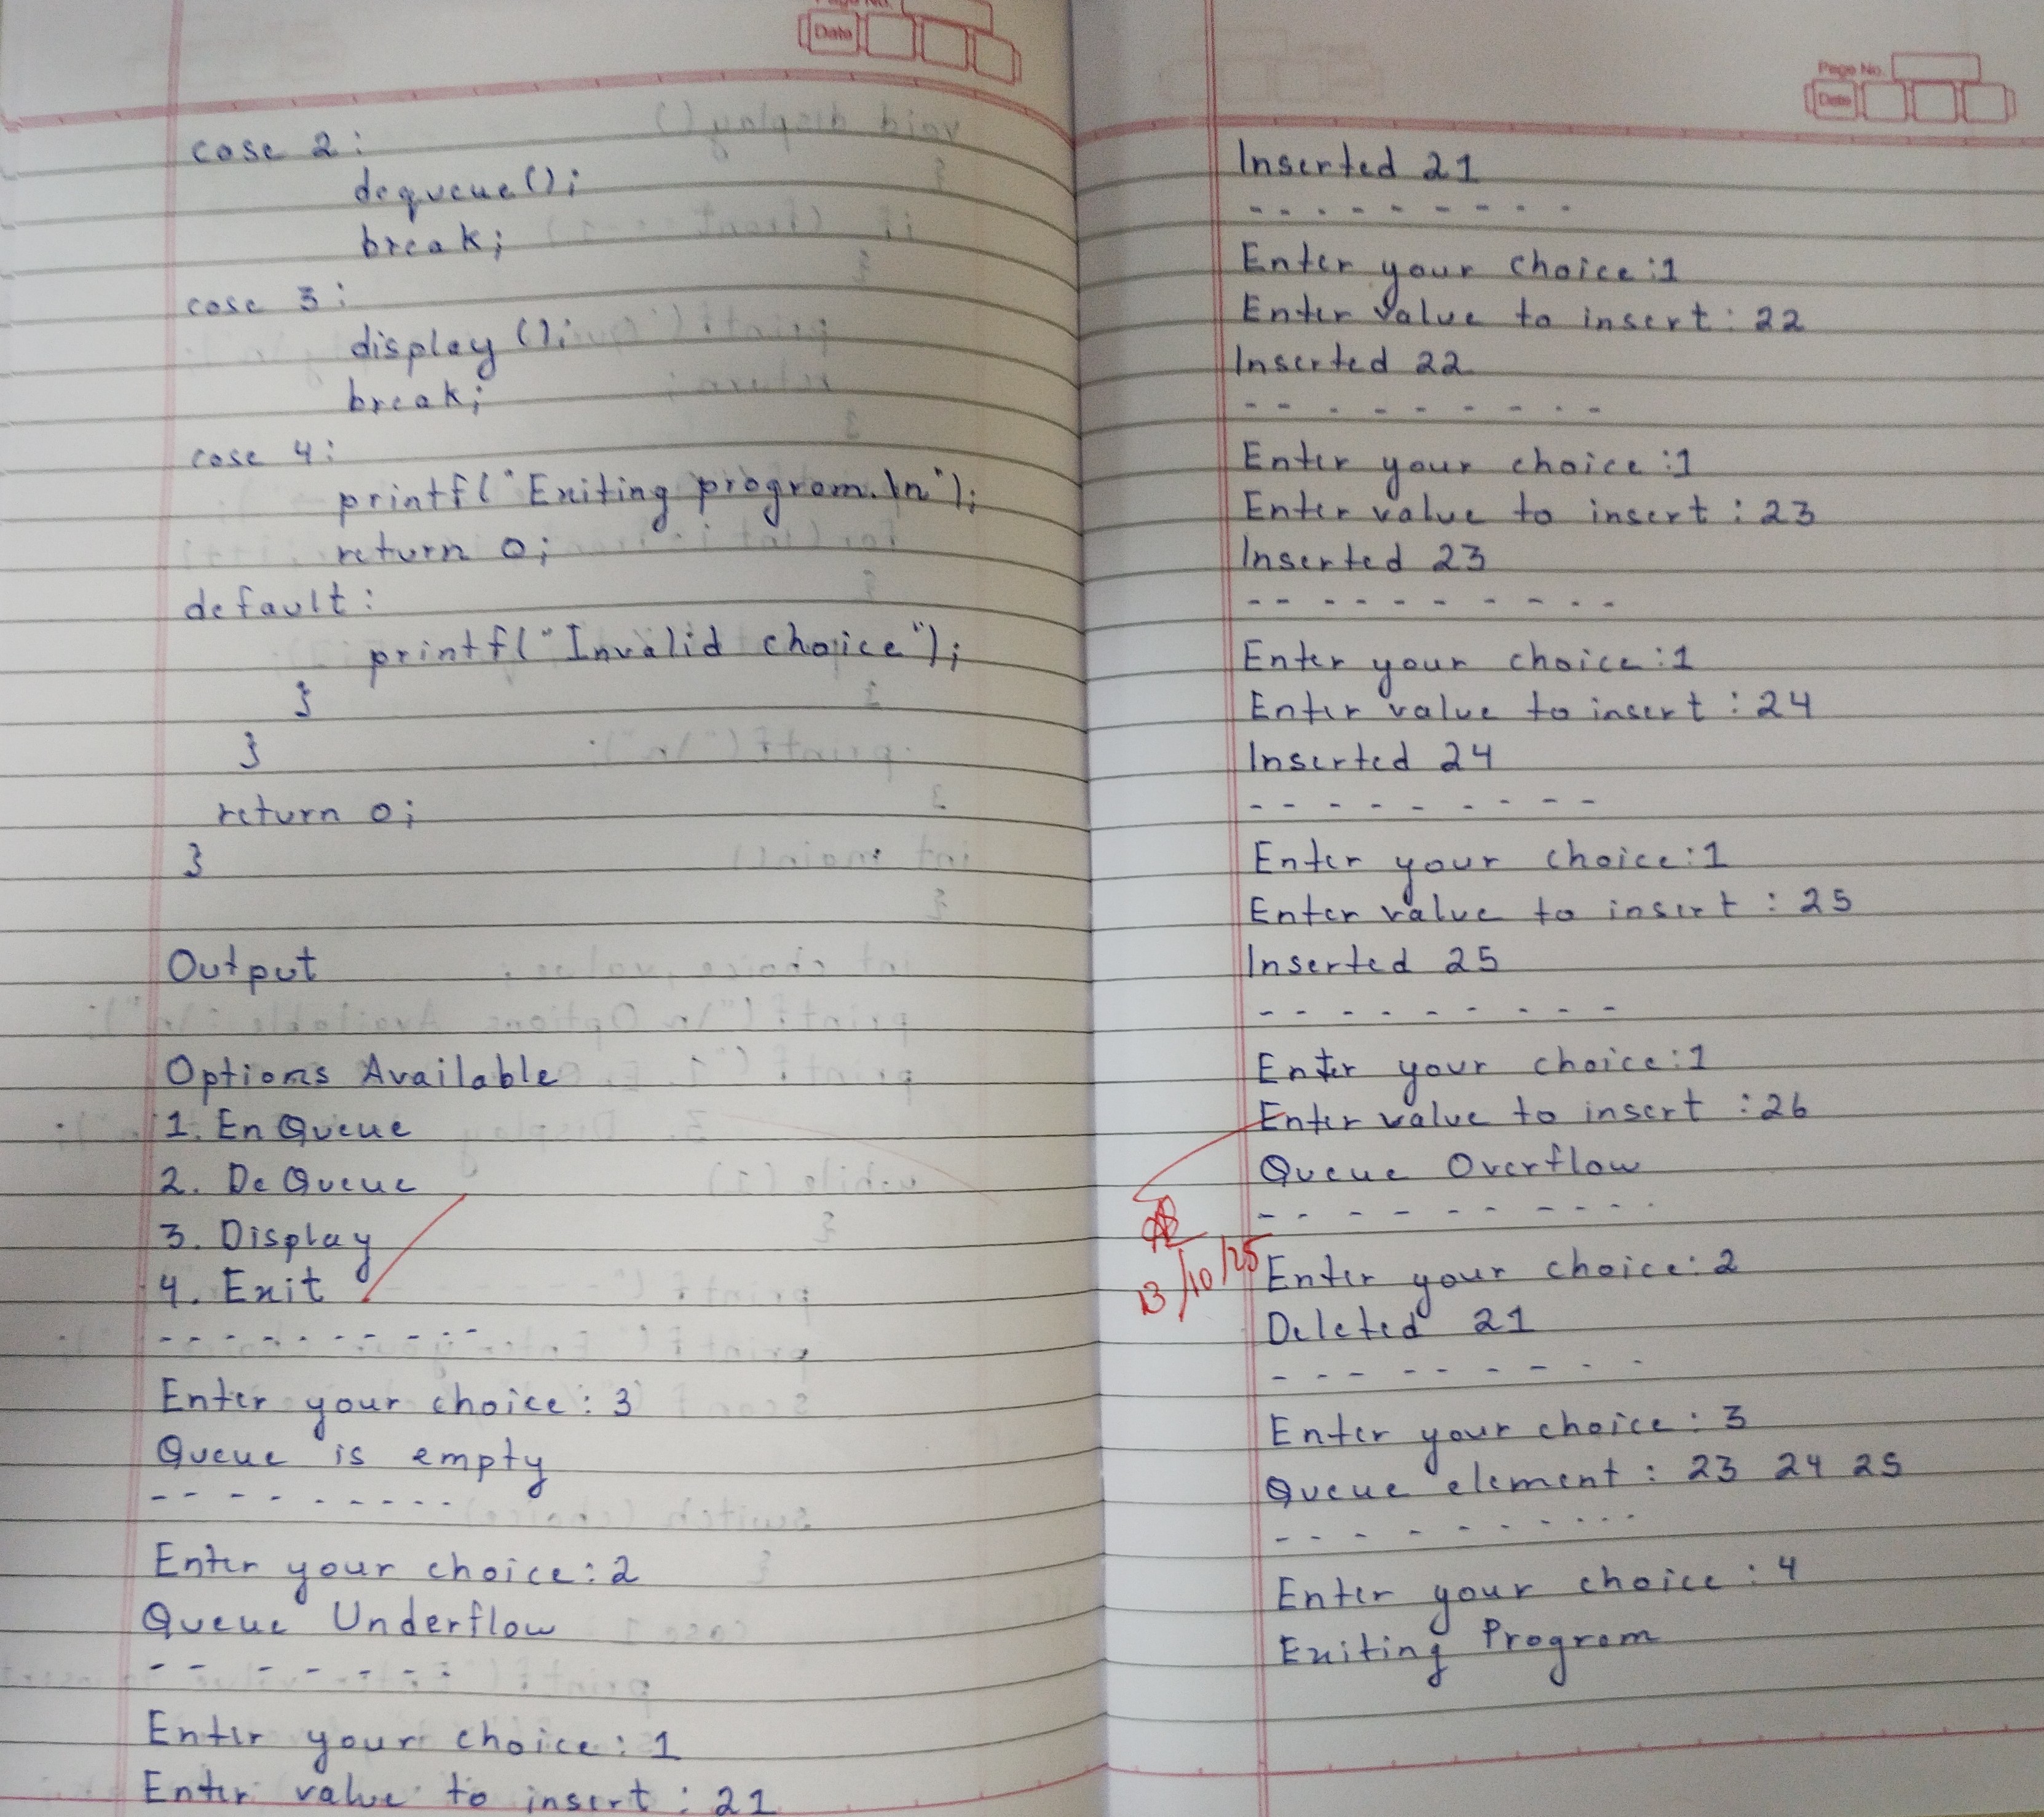 Page No.
Date
case 2:
dequeue();
break;
case 3:
display();
break;
case 4:
printf("Exiting program.\n");
return 0;
default:
printf("Invalid choice");
}
}
return 0;
}
Output
Options Available
1. EnQueue
2. DeQueue
3. Display
4. Exit
- - - - - - - - - -
Enter your choice: 3
Queue is empty
- - - - - - - - -
Enter your choice: 2
Queue Underflow
- - - - - - - -
Enter your choice: 1
Enter value to insert: 21
Page No.
Date
Inserted 21
- - - - - - - - -
Enter your choice:1
Enter value to insert: 22
Inserted 22
- - - - - - - - -
Enter your choice:1
Enter value to insert : 23
Inserted 23
- - - - - - - - - -
Enter your choice:1
Enter value to insert : 24
Inserted 24
- - - - - - - - -
Enter your choice:1
Enter value to insert : 25
Inserted 25
- - - - - - - - -
Enter your choice:1
Enter value to insert :26
Queue Overflow
- - - - - - - - - -
13/10/25
Enter your choice: 2
Deleted 21
- - - - - - - - -
Enter your choice: 3
Queue element : 23 24 25
- - - - - - - - - -
Enter your choice : 4
Exiting Program